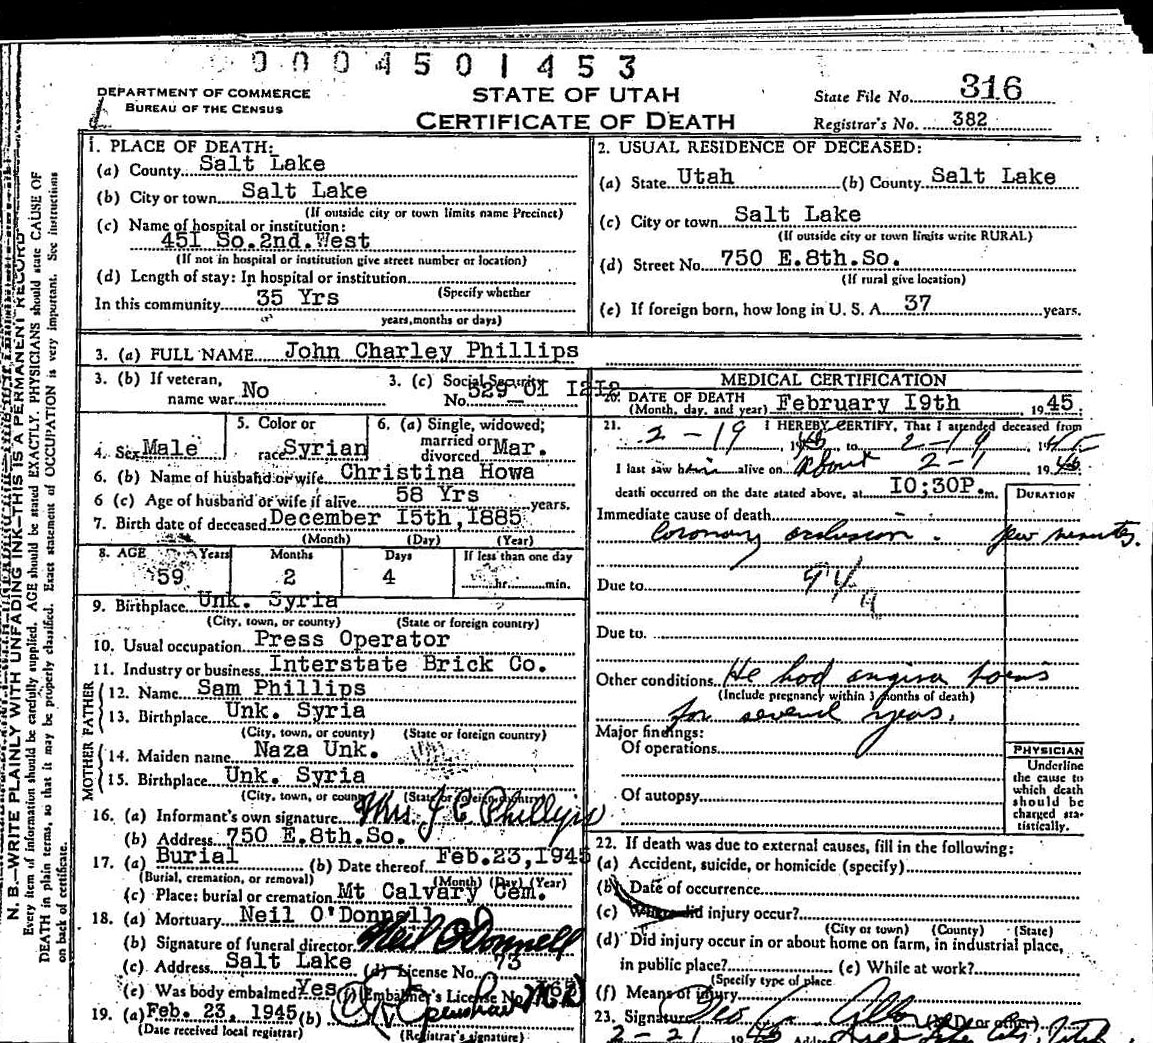 0 0 0 4 5 0 1 4 5 3
DEPARTMENT OF COMMERCE
BUREAU OF THE CENSUS
STATE OF UTAH
CERTIFICATE OF DEATH
State File No. 316
Registrar's No. 382
N. B.—WRITE PLAINLY WITH UNFADING INK—THIS IS A PERMANENT RECORD
Every item of information should be carefully supplied. AGE should be stated EXACTLY. PHYSICIANS should state CAUSE OF
DEATH in plain terms, so that it may be properly classified. Exact statement of OCCUPATION is very important. See instructions
on back of certificate.
1. PLACE OF DEATH:
(a) County Salt Lake
(b) City or town Salt Lake
(If outside city or town limits name Precinct)
(c) Name of hospital or institution:
451 So.2nd.West
(If not in hospital or institution give street number or location)
(d) Length of stay: In hospital or institution
(Specify whether
In this community 35 Yrs
years, months or days)
2. USUAL RESIDENCE OF DECEASED:
(a) State Utah (b) County Salt Lake
(c) City or town Salt Lake
(If outside city or town limits write RURAL)
(d) Street No. 750 E.8th.So.
(If rural give location)
(e) If foreign born, how long in U. S. A. 37 years.
3. (a) FULL NAME John Charley Phillips
3. (b) If veteran,
name war No
3. (c) Social Security
No. 529 01 1212
4. Sex Male
5. Color or
race Syrian
6. (a) Single, widowed;
married or
divorced Mar.
6. (b) Name of husband or wife Christina Howa
6 (c) Age of husband or wife if alive 58 Yrs years.
7. Birth date of deceased December 15th, 1885
(Month) (Day) (Year)
8. AGE Years Months Days If less than one day
59 2 4 hr. min.
9. Birthplace Unk. Syria
(City, town, or county) (State or foreign country)
10. Usual occupation Press Operator
11. Industry or business Interstate Brick Co.
FATHER
12. Name Sam Phillips
13. Birthplace Unk. Syria
(City, town, or county) (State or foreign country)
MOTHER
14. Maiden name Naza Unk.
15. Birthplace Unk. Syria
(City, town, or county) (State or foreign country)
16. (a) Informant's own signature Mrs. J C Phillips
(b) Address 750 E.8th.So.
17. (a) Burial (b) Date thereof Feb.23,1945
(Burial, cremation, or removal) (Month) (Day) (Year)
(c) Place: burial or cremation Mt Calvary Cem.
18. (a) Mortuary Neil O'Donnell
(b) Signature of funeral director Neil O'Donnell
(c) Address Salt Lake (d) License No. 73
(e) Was body embalmed? Yes (f) Embalmer's License No.
19. (a) Feb. 23, 1945 (b) M.D
(Date received local registrar) (Registrar's signature)
MEDICAL CERTIFICATION
20. DATE OF DEATH
(Month, day, and year) February 19th 1945
21. I HEREBY CERTIFY, That I attended deceased from
2-19 1945 to 2-19 1945
I last saw him alive on About 2-1 1945
death occurred on the date stated above, at 10;30P. m.
DURATION
Immediate cause of death
Coronary occlusion. few minutes.
Due to 94a
Due to
Other conditions He had angina
(Include pregnancy within 3 months of death)
for several years.
Major findings:
Of operations
Of autopsy
PHYSICIAN
Underline
the cause to
which death
should be
charged sta-
tistically.
22. If death was due to external causes, fill in the following:
(a) Accident, suicide, or homicide (specify)
(b) Date of occurrence
(c) Where did injury occur?
(City or town) (County) (State)
(d) Did injury occur in or about home on farm, in industrial place,
in public place? (e) While at work?
(Specify type of place
(f) Means of injury
23. Signature Geo (M.D. or other)
2-21 1945 Address Salt Lake City, Utah